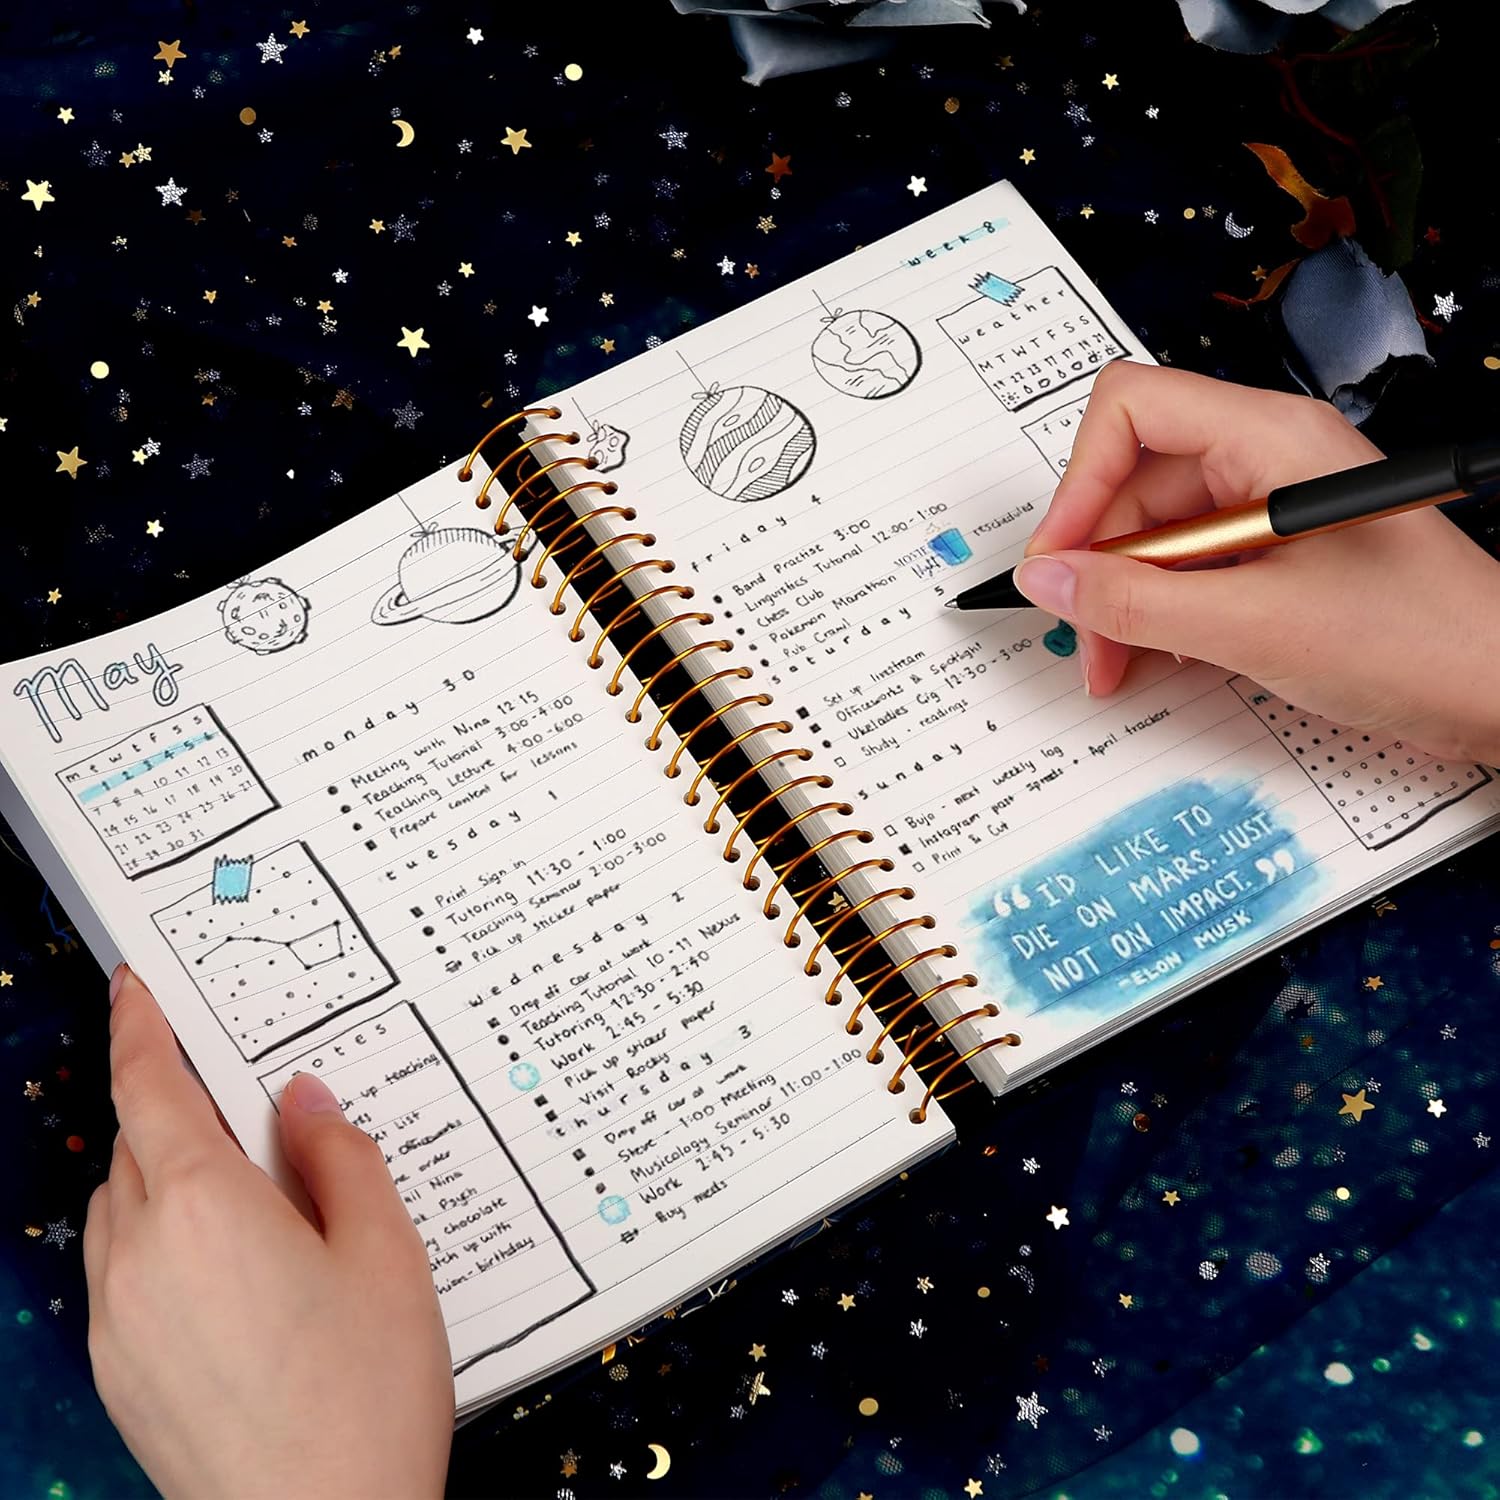 May
m t w t f s s
1 2 3 4 5 6
7 8 9 10 11 12 13
14 15 16 17 18 19 20
21 22 23 24 25 26 27
28 29 30 31
notes
teaching
List
Officeworks
order
Nina
Psych
chocolate
up with
birthday
monday 30
Meeting with Nina 12:15
Teaching Tutorial 3:00-4:00
Teaching Lecture 4:00-6:00
Prepare content for lessons
tuesday 1
Print Sign in
Tutoring 11:30 - 1:00
Teaching Seminar 2:00-3:00
Pick up sticker paper
wednesday 2
Drop off car at work
Teaching Tutorial 10-11 Nexus
Tutoring 12:30 - 2:40
Work 2:45 - 5:30
Pick up sticker paper
Visit Rocky
thursday 3
Drop off car at work
Steve - 1:00 Meeting
Musicology Seminar 11:00-1:00
Work 2:45 - 5:30
Buy meds
week 8
weather
M T W T F S S
fu
friday 4
Band Practise 3:00
Linguistics Tutorial 12:00-1:00
Chess Club
Pokemon Marathon
Night rescheduled
Pub Crawl
saturday 5
Set up livestream
Officeworks & Spotlight
Ukeladies Gig 12:30 - 3:00
Study - readings
sunday 6
Bujo - next weekly log
Instagram past spreads + April trackers
Print & Cut
m
“I'D LIKE TO
DIE ON MARS. JUST
NOT ON IMPACT.”
-ELON MUSK